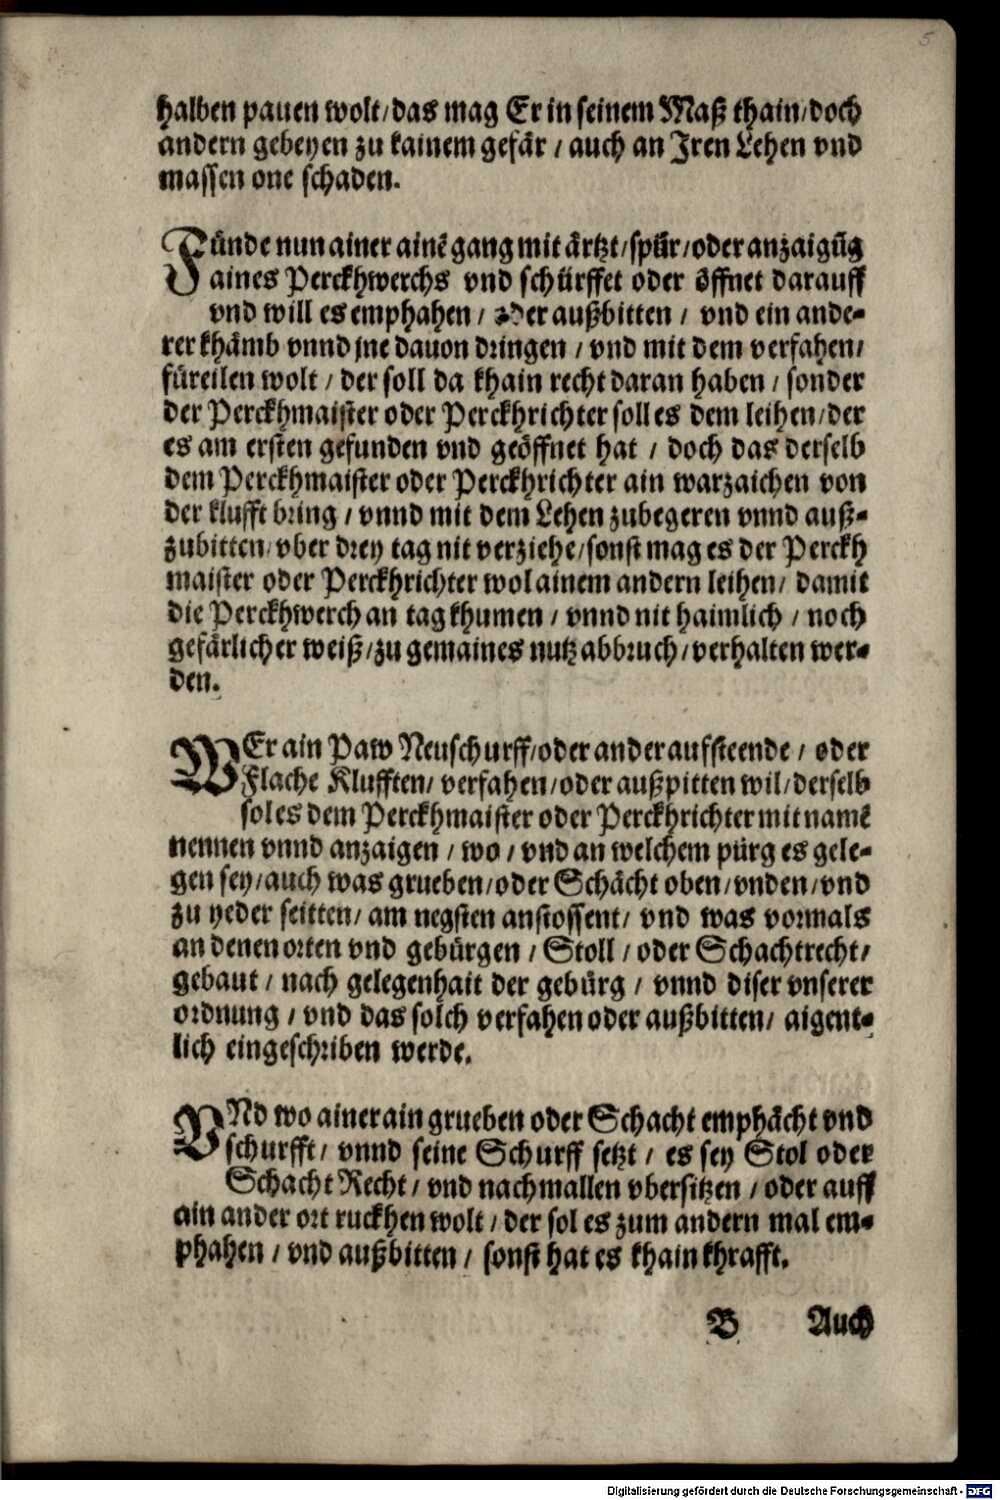 5
halben pauen wolt/das mag Er in seinem Maß thain/doch
andern gebeyen zu kainem gefär / auch an Jren Lehen vnd
massen one schaden.
Fünde nun ainer ainē gang mit ärtzt/spür/oder anzaigūg
aines Perckhwerchs vnd schürffet oder öffnet darauff
vnd will es emphahen / oder außbitten / vnd ein ande-
rer khämb vnnd jne dauon dringen / vnd mit dem verfahen/
füreilen wolt / der soll da khain recht daran haben / sonder
der Perckhmaister oder Perckhrichter soll es dem leihen/der
es am ersten gefunden vnd geöffnet hat / doch das derselb
dem Perckhmaister oder Perckhrichter ain warzaichen von
der klufft bring / vnnd mit dem Lehen zubegeren vnnd auß-
zubitten/vber drey tag nit verziehe/sonst mag es der Perckh
maister oder Perckhrichter wol ainem andern leihen/ damit
die Perckhwerch an tag khumen / vnnd nit haimlich / noch
gefärlicher weiß/zu gemaines nutz abbruch/verhalten wer-
den.
WEr ain Paw Neuschurff/oder ander aufsteende / oder
Flache Klufften/ verfahen/oder außpitten wil/derselb
sol es dem Perckhmaister oder Perckhrichter mit namē
nennen vnnd anzaigen / wo / vnd an welchem pürg es gele-
gen sey/auch was grueben/oder Schächt oben/vnden/vnd
zu yeder seitten/ am negsten anstossent/ vnd was vormals
an denen orten vnd gebürgen / Stoll / oder Schachtrecht/
gebaut / nach gelegenhait der gebürg / vnnd diser vnserer
ordnung / vnd das solch verfahen oder außbitten/ aigent-
lich eingeschriben werde.
VNd wo ainer ain grueben oder Schacht emphächt vnd
schurfft/ vnnd seine Schurff setzt / es sey Stol oder
Schacht Recht/ vnd nachmallen vbersitzen / oder auff
ain ander ort ruckhen wolt / der sol es zum andern mal em-
phahen / vnd außbitten / sonst hat es khain khrafft.
B Auch
Digitalisierung gefördert durch die Deutsche Forschungsgemeinschaft - DFG